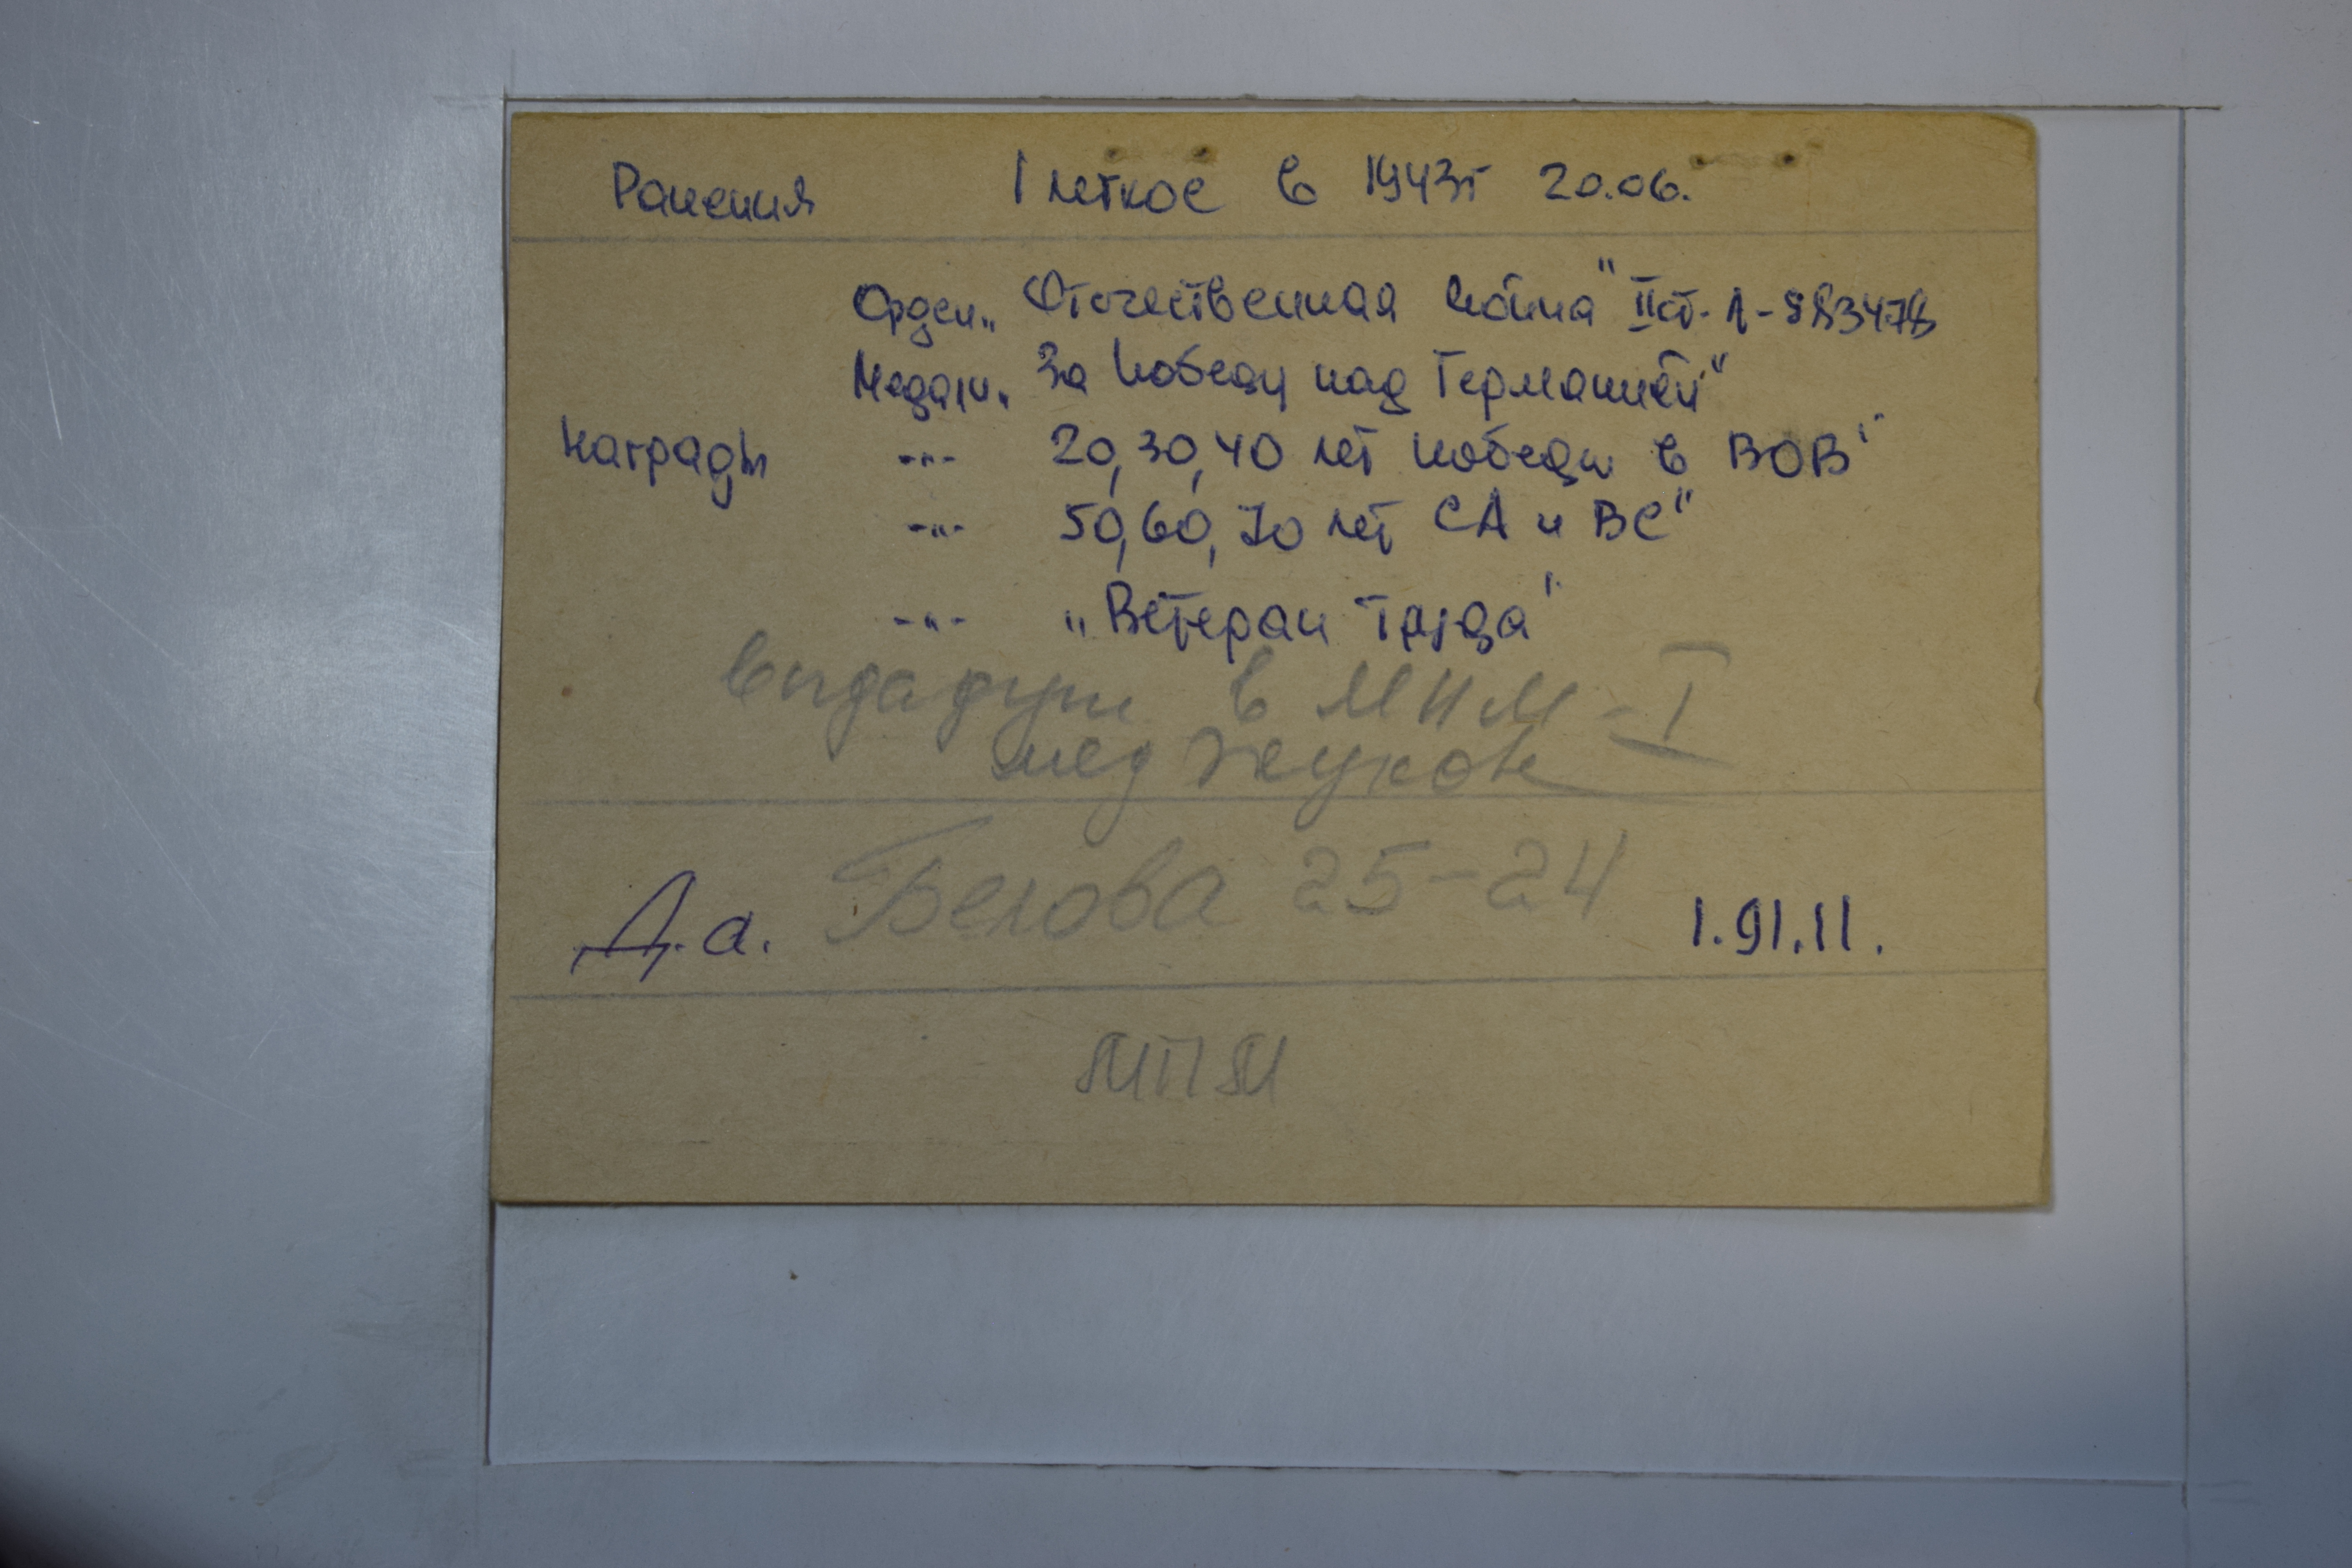 Ранения 1 легкое в 1943г 20.06.
Орден „Отечественная война" II ст. Л-883478
Медали „За победу над Германией"
Награды -"- 20, 30, 40 лет победы в ВОВ"
-"- 50, 60, 70 лет СА и ВС"
-"- „Ветеран труда"
в МПМ-I
мед Жукова
Д.а. Белова 25-24 1.91.11.
МПМ